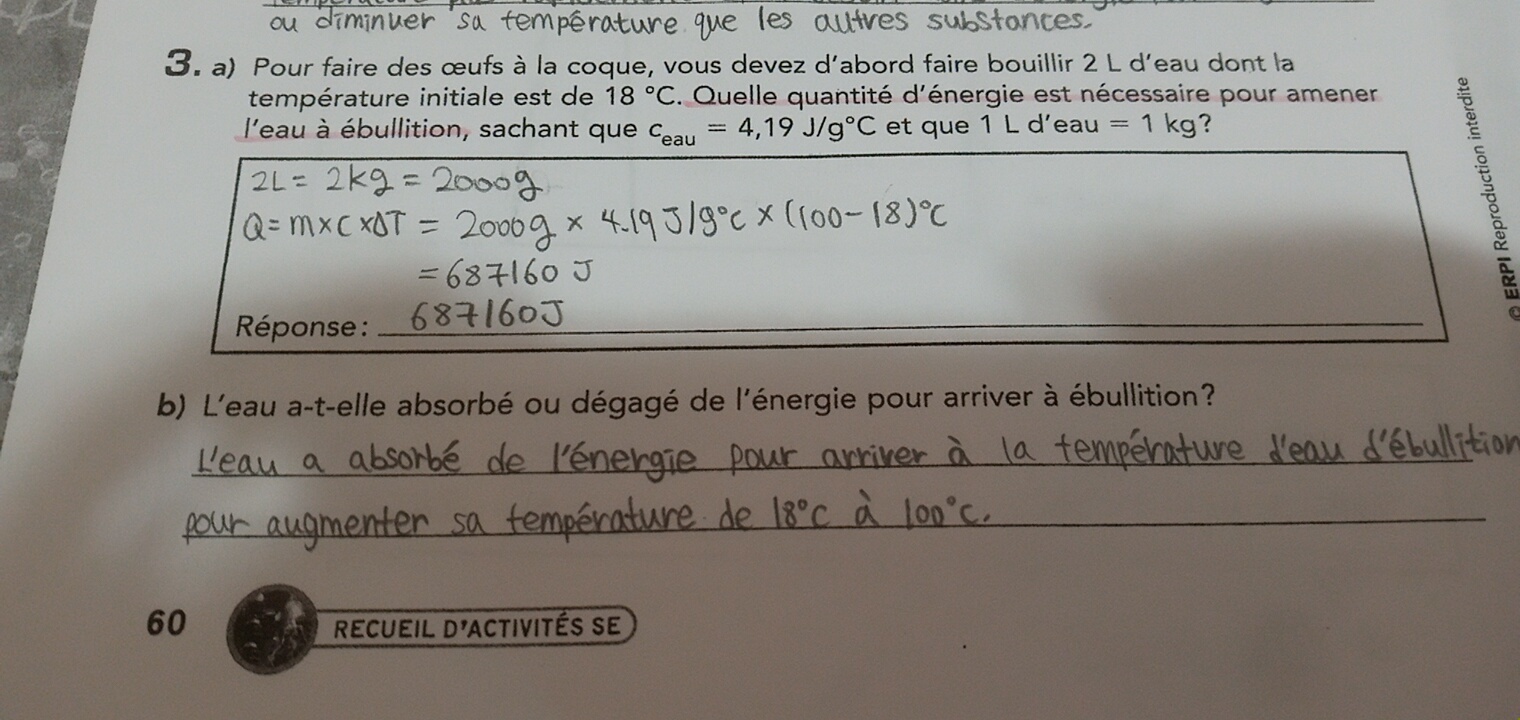 ou diminuer sa température que les autres substances.
3. a) Pour faire des œufs à la coque, vous devez d'abord faire bouillir 2 L d'eau dont la
température initiale est de 18 °C. Quelle quantité d'énergie est nécessaire pour amener
l'eau à ébullition, sachant que c_eau = 4,19 J/g°C et que 1 L d'eau = 1 kg?
2L = 2kg = 2000g
Q = m×c×ΔT = 2000g × 4.19 J/g°C × (100-18)°C
= 687160 J
Réponse: 687160J
b) L'eau a-t-elle absorbé ou dégagé de l'énergie pour arriver à ébullition?
L'eau a absorbé de l'énergie pour arriver à la température d'eau d'ébullition
pour augmenter sa température de 18°C à 100°C.
60 RECUEIL D'ACTIVITÉS SE
© ERPI Reproduction interdite